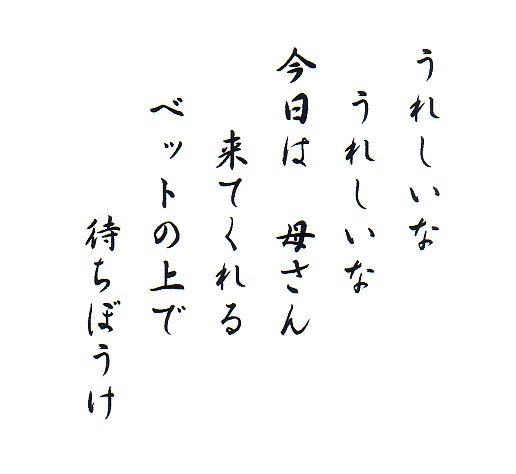 うれしいな
うれしいな
今日は　母さん
来てくれる
ベットの上で
待ちぼうけ